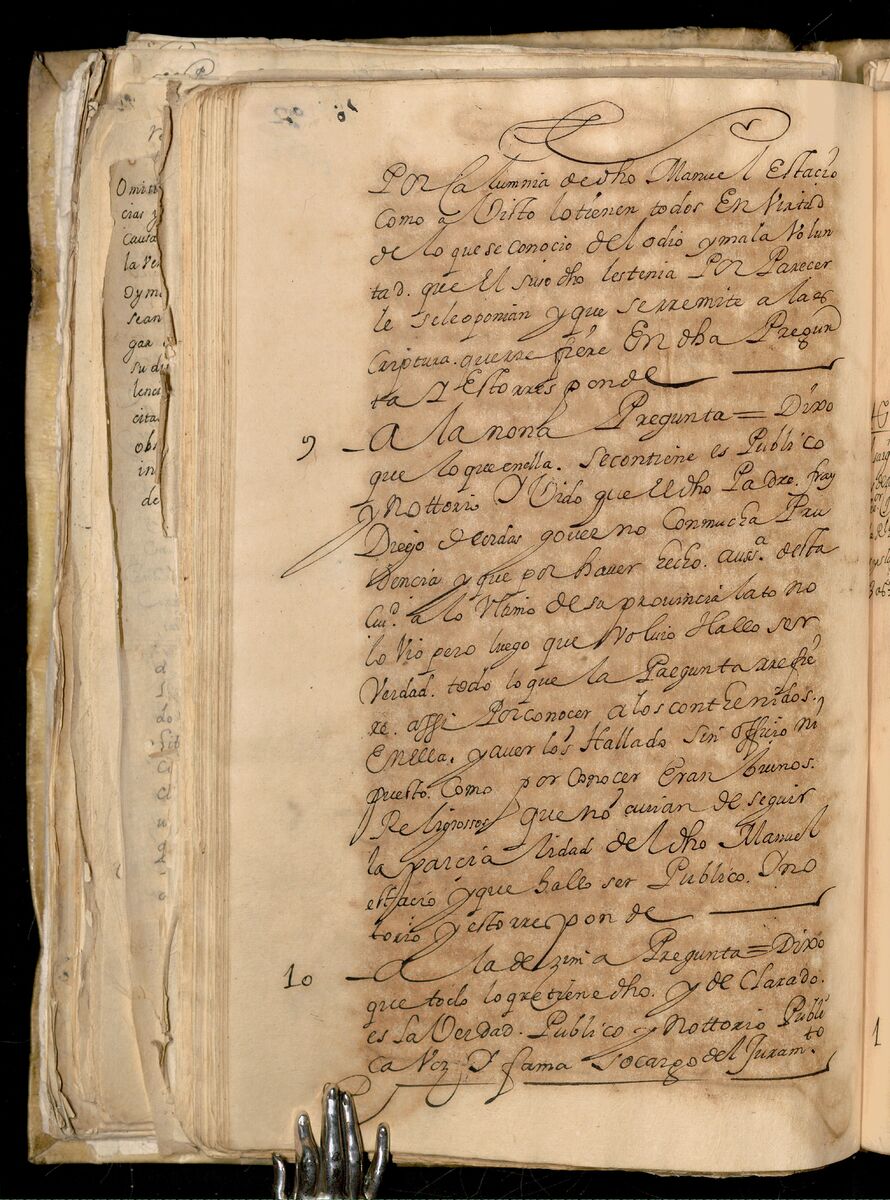 Por Calumnia de dho Manuel Estacio
Como a Visto lo tienen todos En Virtud
de lo que se conocio del odio y mala Volun
tad. que El suso dho les tenia Por Parecer
le se le oponian y que se rremite a la es
Criptura. que rrefiere En dha Pregun
ta Y Esto rresponde
9 A la nona Pregunta = Dixo
que lo que en ella. se contiene es Publico
y Nottorio Y Vido que El dho Padre. fray
Diego de cordas governo con mucha Pru
dencia y que por haver hecho. auss.ª desta
Ciu.d a lo Vltimo de su provincialato no
lo Vio pero luego que Voluio Hallo ser
Verdad. todo lo que la Pregunta rrefie
re. assi Por conocer a los conthenidos.
En ella. y aver los Hallado sin officio ni
puesto. Como por Conocer Eran buenos.
Religiossos que no querian de seguir
la parcialidad del dho Manuel
estacio y que hallo ser Publico. Y no
torio y esto rresponde
10 A la dezima Pregunta = Dixo
que todo lo que tiene dho. y de Clarado.
es La Verdad. Publico y Nottorio Publi
ca Voz Y fama so cargo del Juram.to
Omiti
cias y
causa
la Ve
Dyma
sean
gar
su di
lenci
cita
obs
in
de